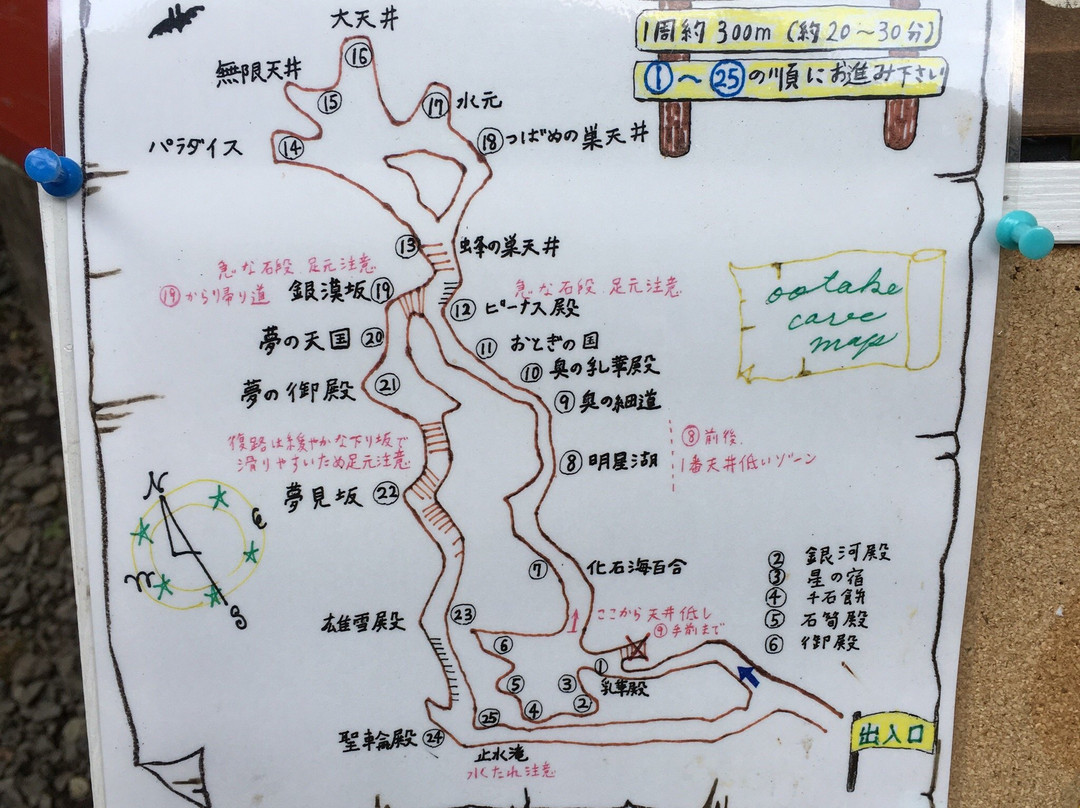 1周約300m(約20~30分)
①~㉕の順にお進み下さい
大天井
⑯
無限天井
⑮
⑰ 水元
パラダイス ⑭
⑱ つばめの巣天井
⑬ 蜂の巣天井
急な石段 足元注意
⑲から帰り道
銀漢坂 ⑲
急な石段 足元注意
⑫ ビーナス殿
ootake
cave
map
夢の天国 ⑳
⑪ おとぎの国
⑩ 奥の乳華殿
夢の御殿 ㉑
⑨ 奥の細道
復路は緩やかな下り坂で
滑りやすいため足元注意
⑧前後、
1番天井低いゾーン
⑧ 明星湖
夢見坂 ㉒
N
e
w
S
⑦ 化石海百合
② 銀河殿
③ 星の宿
④ 千石餅
⑤ 石筍殿
⑥ 御殿
ここから天井低し
⑨手前まで
雄雪殿 ㉓
⑥
① 乳華殿
⑤
③
②
④
㉕
止水滝
水たれ注意
聖輪殿 ㉔
出入口